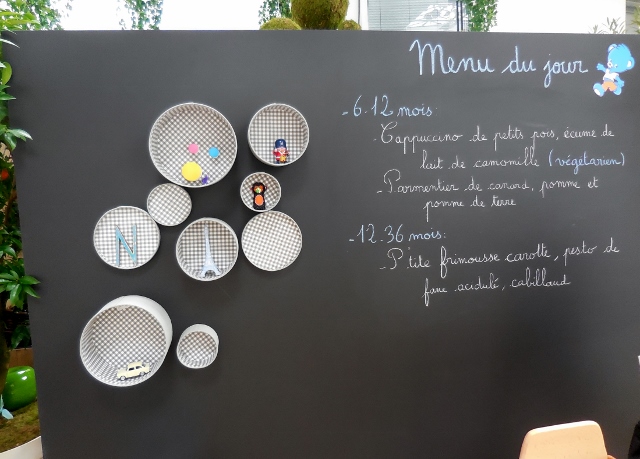 Menu du jour
- 6.12 mois
- Cappuccino de petits pois, écume de
lait de camomille (végétarien)
- Parmentier de canard, pomme et
pomme de terre
- 12.36 mois:
- P'tite frimousse carotte, pesto de
fane acidulé, cabillaud
N